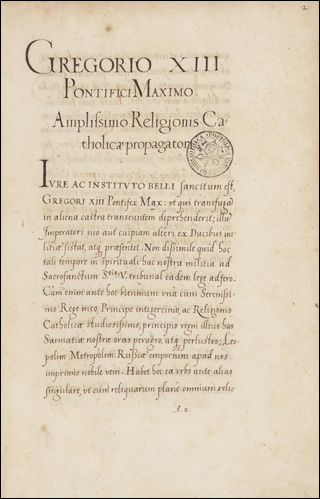 2
GREGORIO XIII
PONTIFICI MAXIMO
Amplissimo Religionis Ca-
tholicæ propagatori
IVRE AC INSTITVTO BELLI sancitum est,
GREGORI XIII Pontifex Max: ut qui transfugã
in aliena castra transeuntem deprehenderit; illũ
Imperatori suo aut cuipiam alteri ex Ducibus mi-
litiæ sistat, atq præsentet. Non dissimile quid hoc
tali tempore in spirituali hac nostra militia ad
Sacrosanctum V. tribunal eadem lege adfero.
Cum enim ante hoc biennium vnà cum Serenissi-
mo Rege meo, Principe integerrimo, ac Religionis
Catholicæ studiosissimo, principio regni illius has
Sarmatiæ nostræ oras peragro, atq perlustro; Leo-
polim Metropolim Russiæ emporium apud nos
imprimis nobile veni. Habet hoc ea vrbs ante alias
singulare, vt cum reliquarum plane omnium relio
A.2.